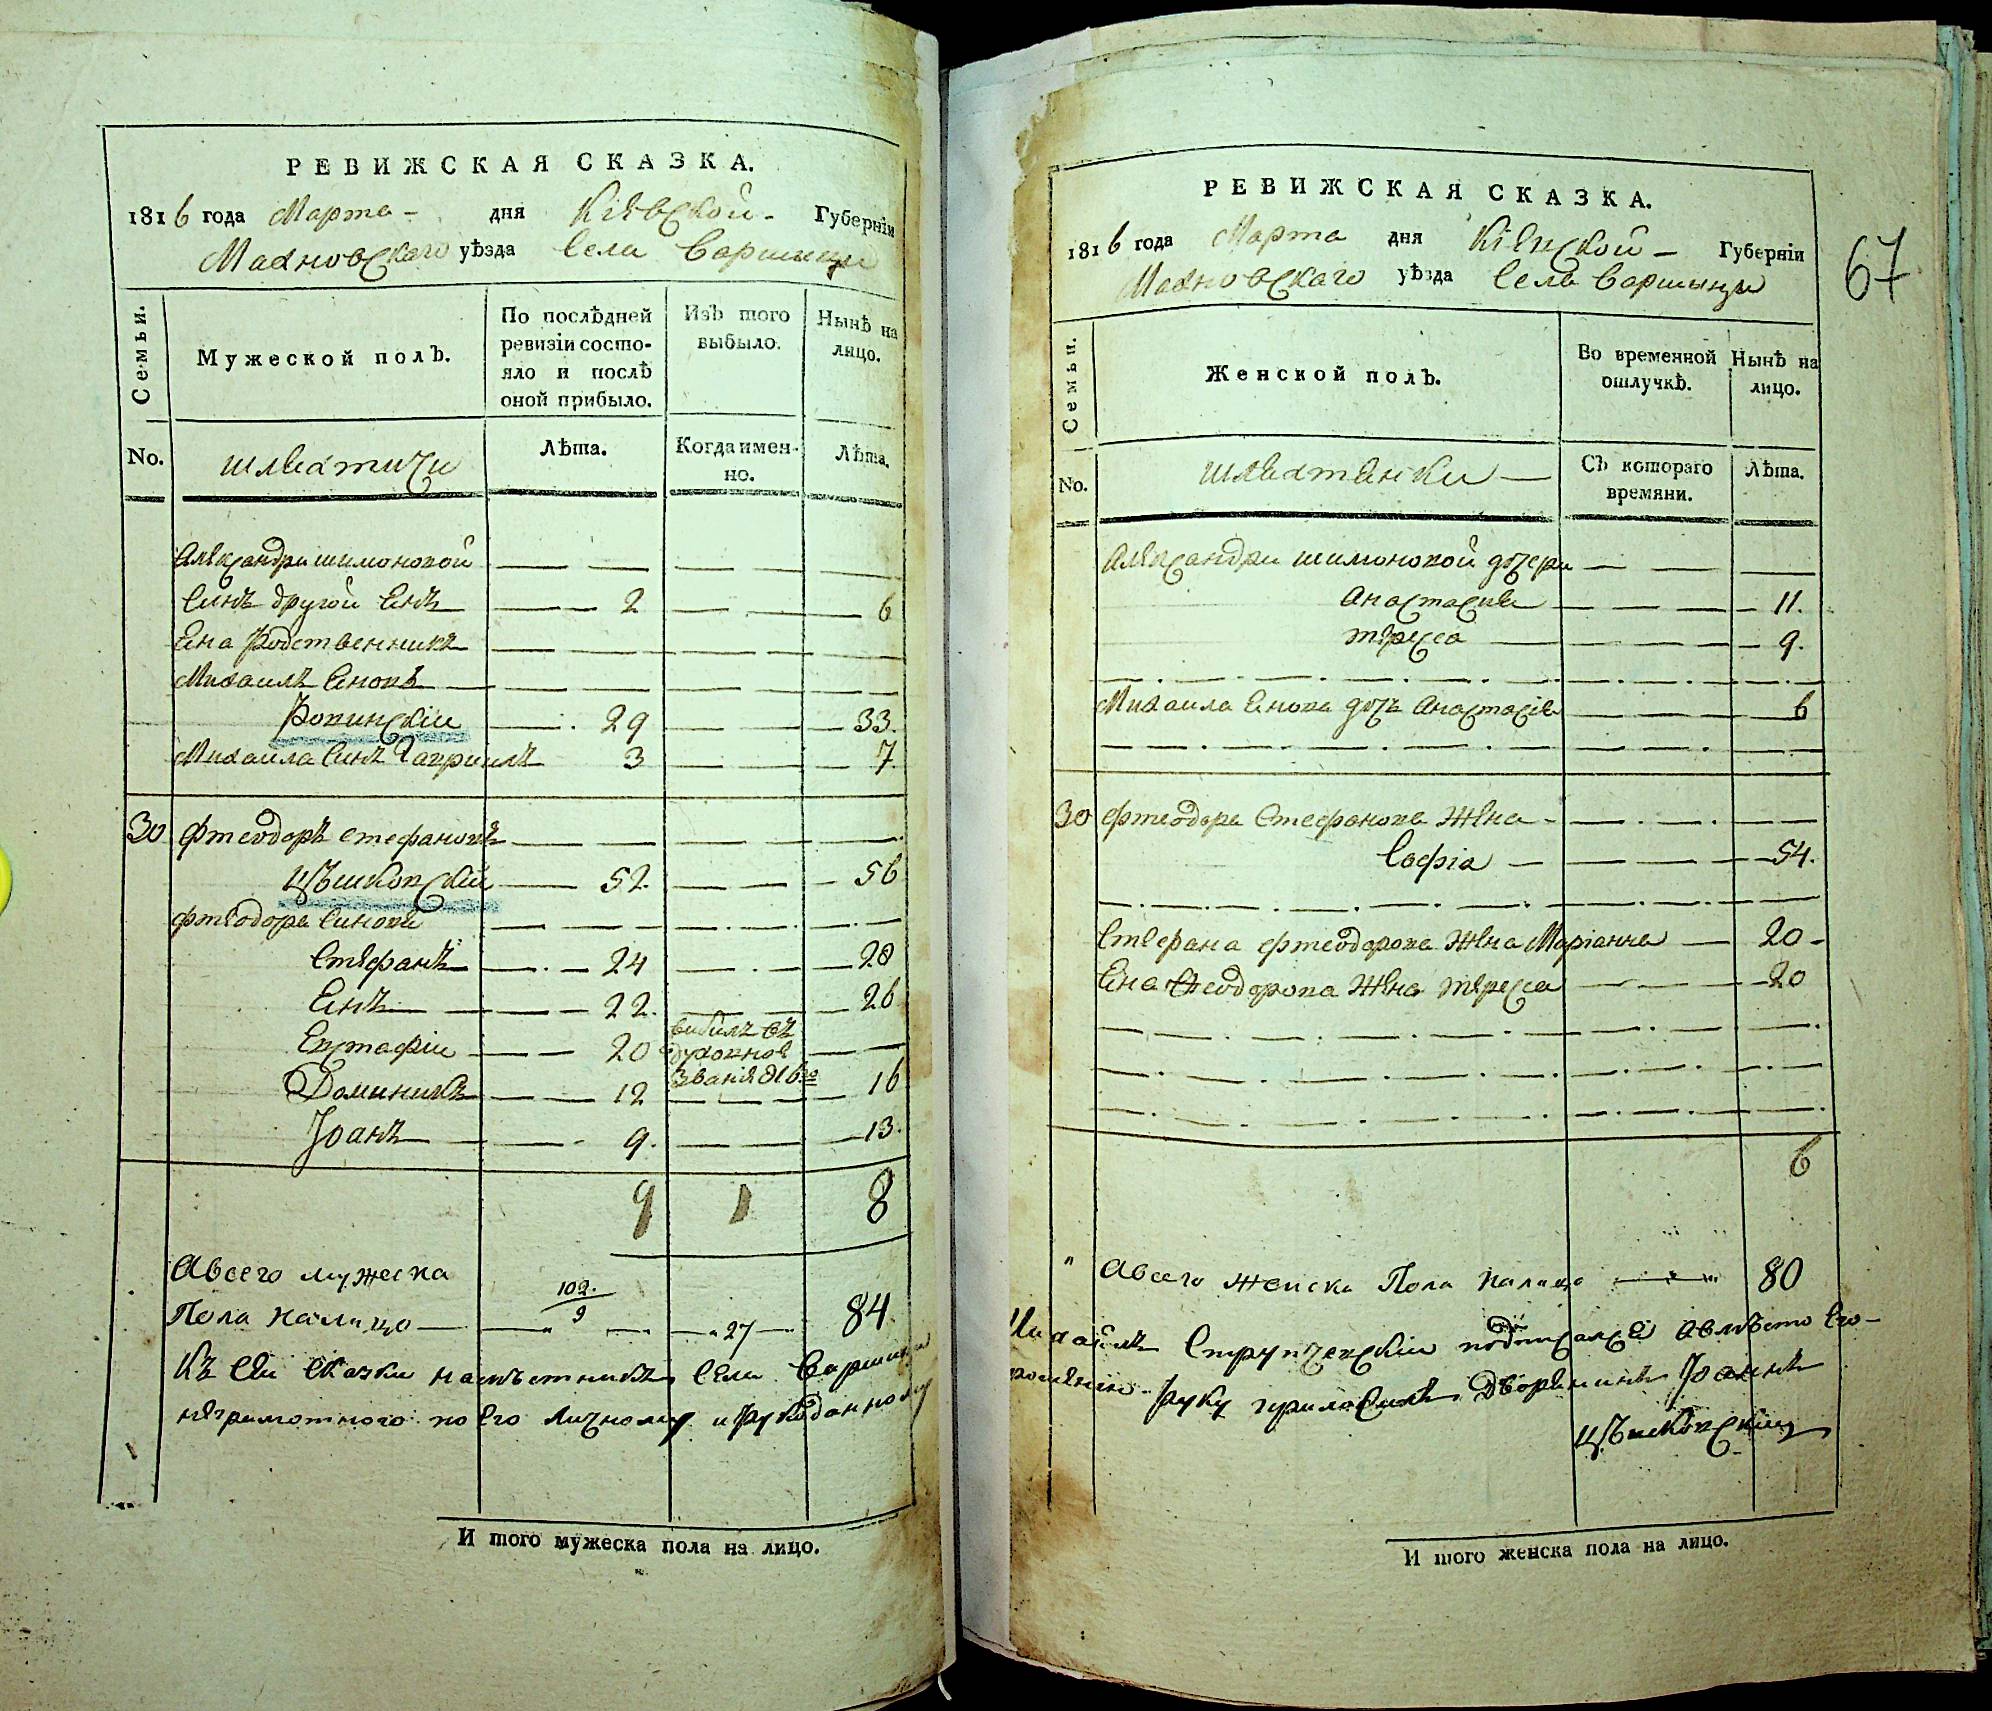 РЕВИЖСКАЯ СКАЗКА.
1816 года Марта - дня Кіевской - Губерніи
Махновскаго уѣзда Села Варшици
Семьи. Мужеской полъ. По послѣдней ревизіи состояло и послѣ оной прибыло. Изъ того выбыло. Нынѣ на лицо.
No. шляхтичи Лѣта. Когда именно. Лѣта.
Александри шимоновой
Синъ другой Янъ 2 6
Яна Родственникъ
Михаилъ Яновъ
29 33.
Михаила Синъ Гавриилъ 3 7
30 Фтеодоръ Стефановъ
Цѣшковскій 52. 56
Фтеодора Синови
Стефанъ 24 28
Янъ 22. 26
Евстафіи 20 вибилъ въ духовное званія 816го
Доминикъ 12 16
Іоанъ 9. 13.
9 1 8
Авсего мужеска 102.
Пола налицо 9 27 84.
Къ сей сказки намѣстникъ Села Варшици
неграмотного по его личному и рукоданному
И того мужеска пола на лицо.
РЕВИЖСКАЯ СКАЗКА.
1816 года Марта дня Кіевской - Губерніи
Махновскаго уѣзда Села Варшыци
67
Семьи. Женской полъ. Во временной отлучкѣ. Нынѣ на лицо.
No. шляхтянки Съ котораго времяни. Лѣта.
Александри шимоновой дочери
Анастасия 11.
Тереса 9.
Михаила Янова дочь Анастасія 6
30 Фтеодора Стефанова Жена
Софіа 54.
Стефана Фтеодорова Жена Маріанна 20
Яна Фтеодорова Жена Тереса 20
6
Авсего женска Пола налицо 80
Михаилъ подписался Авмѣсто Его
руку приложилъ Дворянинъ Іоаннъ
Цѣшковскій
И того женска пола на лицо.